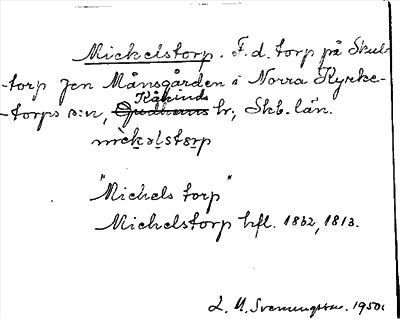 Mickelstorp. F.d. torp på Skul-
-torp Jen Månsgården i Norra Kyrke-
Kåkinds
-torps s:n, Gudhems hr, Skb. län.
mickəlstɔrp
"Michels torp"
Michelstorp hfl. 1802, 1813.
L. M. Svenungsson. 1950.